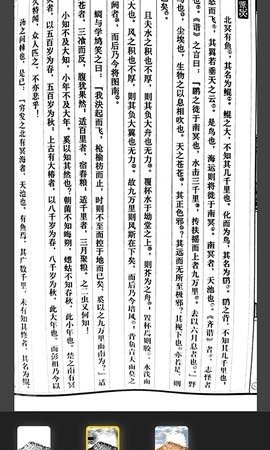 北冥有鱼，其名为鲲。鲲之大，不知其几千里也。化而为鸟，其名为鹏。鹏之背，不知其几千里也，
怒而飞，其翼若垂天之云。是鸟也，海运则将徙于南冥。南冥者，天池也。《齐谐》者，志怪者
也。《谐》之言曰：“鹏之徙于南冥也，水击三千里，抟扶摇而上者九万里，去以六月息者也。”野
马也，尘埃也，生物之以息相吹也。天之苍苍，其正色邪？其远而无所至极邪？其视下也，亦若是，则
且夫水之积也不厚，则其负大舟也无力。覆杯水于坳堂之上，则芥为之舟，置杯焉则胶，水浅而
大也。风之积也不厚，则其负大翼也无力。故九万里则风斯在下矣，而后乃今培风；背负青天而莫之
阏者，而后乃今将图南。
蜩与学鸠笑之曰：“我决起而飞，枪榆枋而止，时则不至而控于地而已矣，奚以之九万里而南为？”适
苍者，三飡而反，腹犹果然；适百里者，宿舂粮；适千里者，三月聚粮。之二虫又何知！
小知不及大知，小年不及大年。奚以知其然也？朝菌不知晦朔，蟪蛄不知春秋，此小年也。楚之南有冥
者，以五百岁为春，五百岁为秋。上古有大椿者，以八千岁为春，八千岁为秋，此大年也。而彭祖乃今以
久特闻，众人匹之，不亦悲乎！
汤之问棘也是已：“穷发之北有冥海者，天池也。有鱼焉，其广数千里，未有知其修者，其名为鲲。